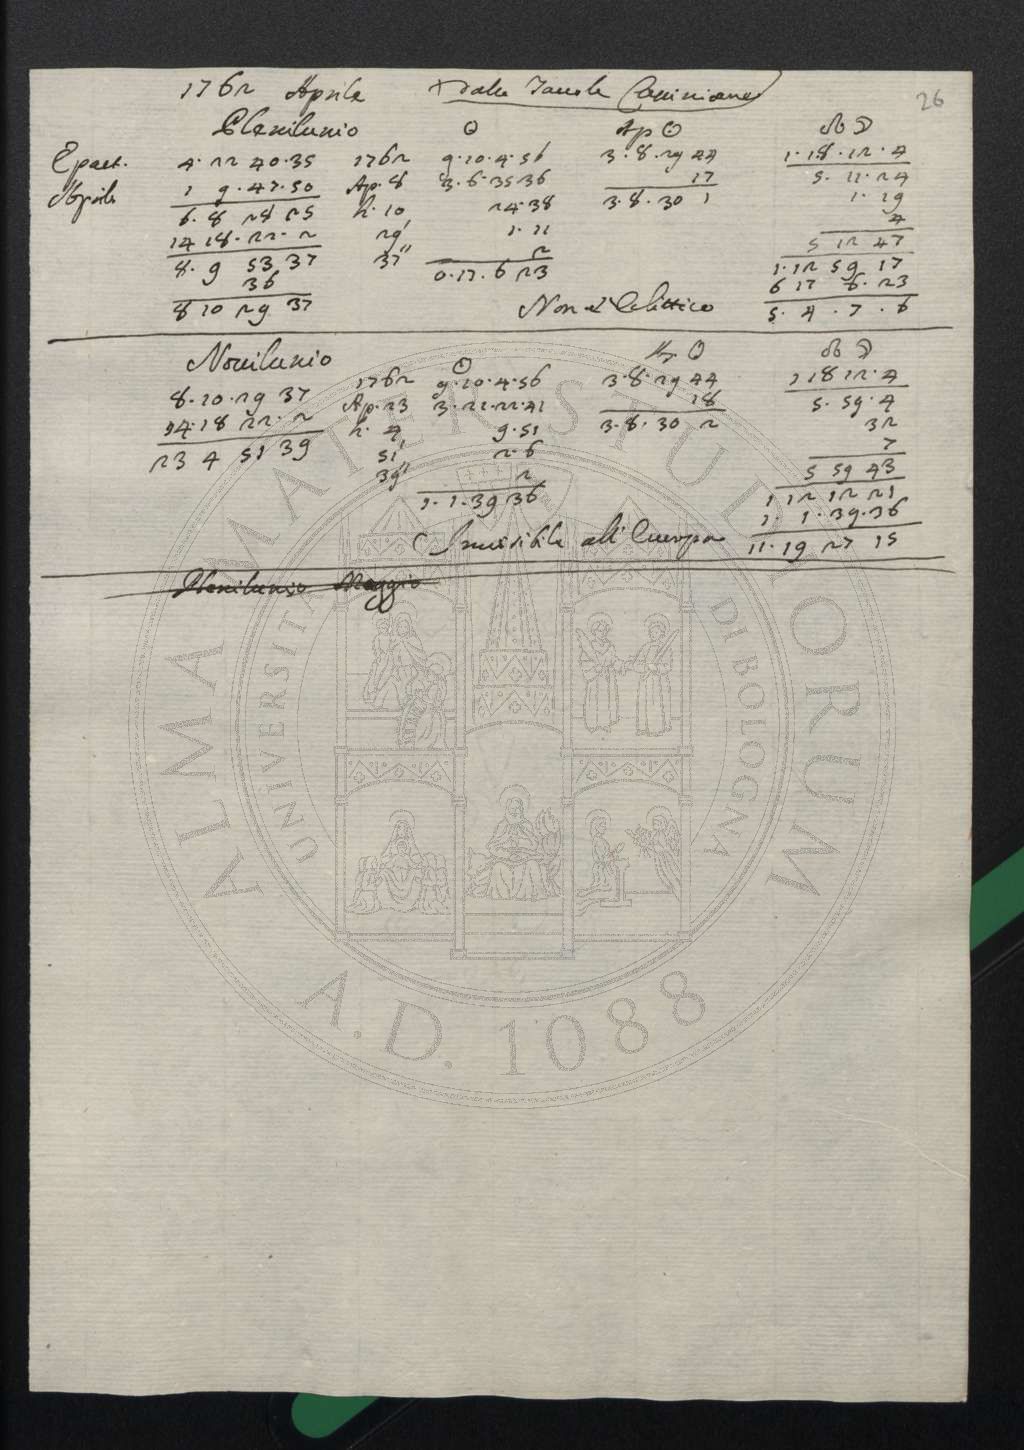 26
1762 Aprile Dalle Tavole Cassiniane
Plenilunio ☉ Ap ☉ ☊ ☽
Epact. 4. 22 40.35 1762 9.10.4.56 3.8.29 44 1.18.12.4
Aprile 1 9.47.50 Ap. 8 3.6.35 36 17 5.11.24
6.8 28 25 h. 10 24.38 3.8.30 1 1.19
14 18.22.2 29' 1.11 4
8.9 53 37 37'' 2 5 12 47
36 0.17.6 23 1.12 59 17
8 10 29 37 6 17 6.23
Non è Eclittico 5.4.7.6
Novilunio ☉ Ap ☉ ☊ ☽
8.10.29 37 1762 9.10.4.56 3.8.29 44 1 18 12.4
14.18 22.2 Ap. 23 3.21.22.41 18 5.59.4
23 4 51 39 h. 4 9.51 3.8.30 2 32
51' 2.6 7
39'' 2 5 59 43
1.1.39 36 1 12 12 21
1.1.39.36
Invisibile all'Europa 11.19 27 15
Plenilunio Maggio
ALMA MATER STUDIORUM
UNIVERSITÀ DI BOLOGNA
A.D. 1088